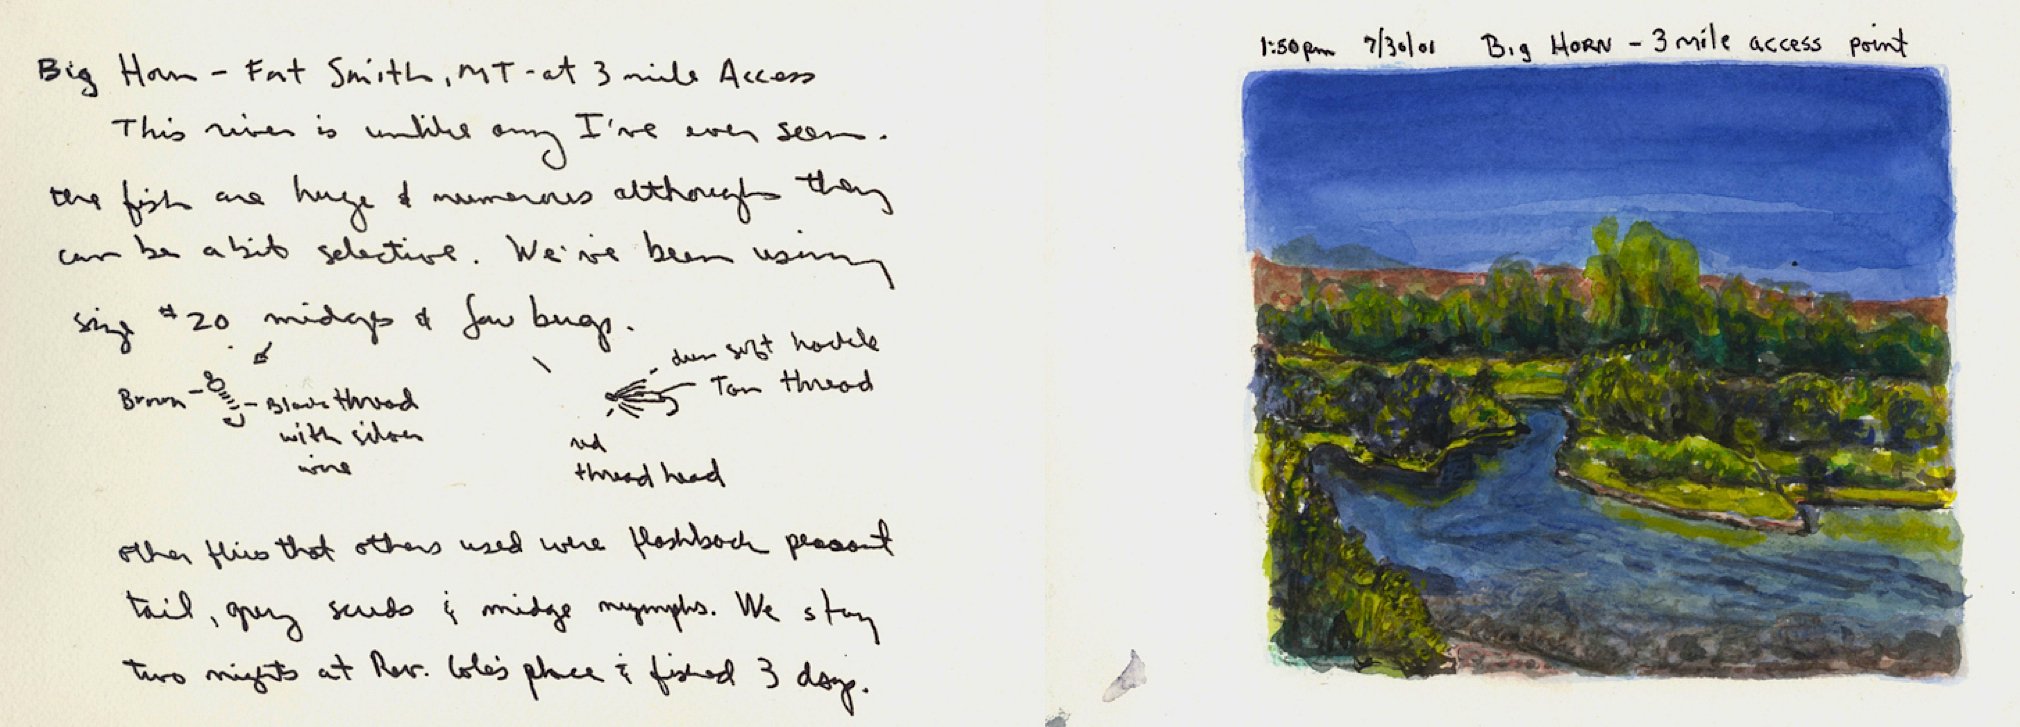 Big Horn - Fort Smith, MT - at 3 mile Access
This river is unlike any I've ever seen.
the fish are huge & numerous although they
can be a bit selective. We've been using
size #20 midges & few bugs.
dun soft hackle
Tan thread
Brown - - Black thread
with silver
wire
red
thread head
other flies that others used were flashback peasant
tail, grey scuds & midge nymphs. We stay
two nights at Rev. Cole's place & fished 3 days.
1:50pm 7/30/01 Big HORN - 3 mile access point